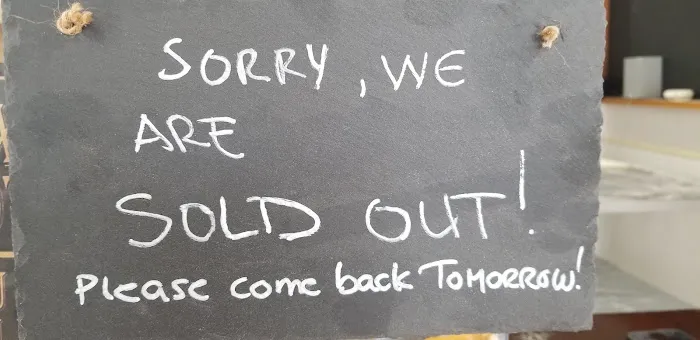 SORRY, WE
ARE
SOLD OUT!
Please come back TOMORROW!